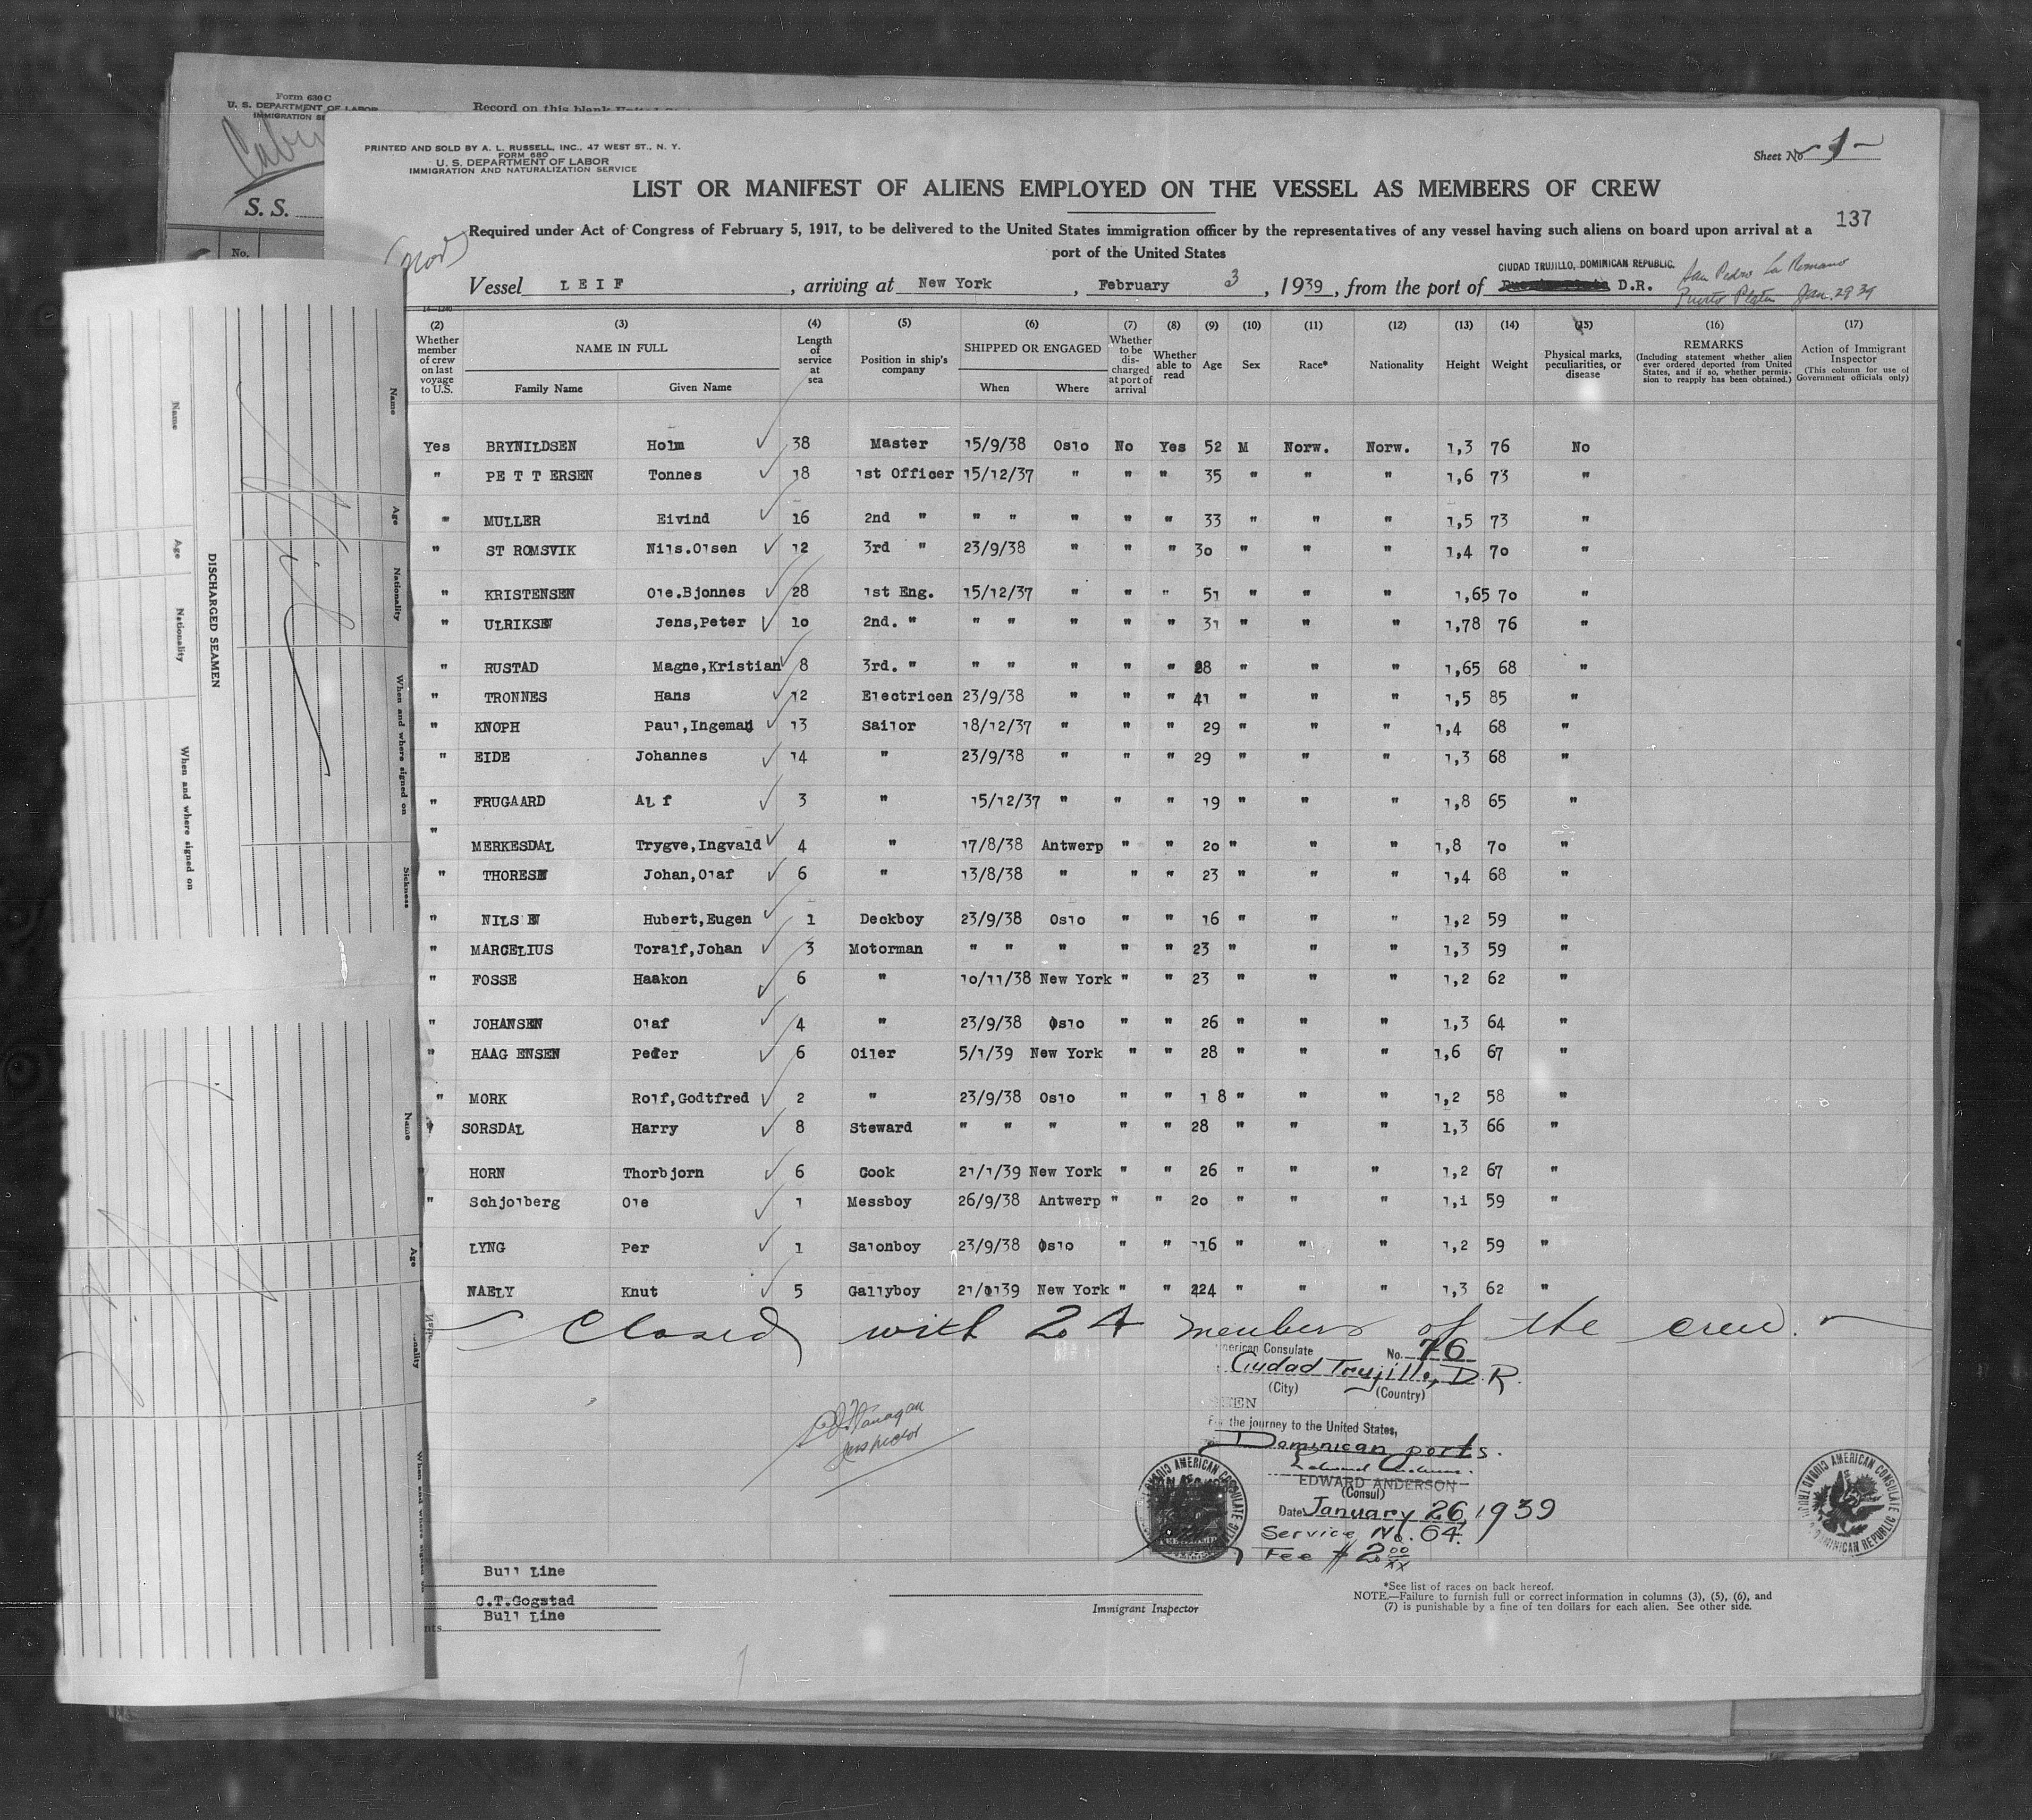 Form 630 C
U. S. DEPARTMENT OF LABOR
Record on this blank
S. S.
No.
PRINTED AND SOLD BY A. L. RUSSELL, INC., 47 WEST ST., N. Y.
FORM 680
U. S. DEPARTMENT OF LABOR
IMMIGRATION AND NATURALIZATION SERVICE
Sheet No. 1
LIST OR MANIFEST OF ALIENS EMPLOYED ON THE VESSEL AS MEMBERS OF CREW
137
Required under Act of Congress of February 5, 1917, to be delivered to the United States immigration officer by the representatives of any vessel having such aliens on board upon arrival at a
port of the United States
(nor)
CIUDAD TRUJILLO, DOMINICAN REPUBLIC. San Pedro La Romana
Vessel LEIF, arriving at New York, February 3, 1939, from the port of D.R. Puerto Plata Jan. 29 39
(2) (3) (4) (5) (6) (7) (8) (9) (10) (11) (12) (13) (14) (15) (16) (17)
Whether member of crew on last voyage to U.S. NAME IN FULL Family Name Given Name Length of service at sea Position in ship's company SHIPPED OR ENGAGED When Where Whether to be discharged at port of arrival Whether able to read Age Sex Race* Nationality Height Weight Physical marks, peculiarities, or disease REMARKS (Including statement whether alien ever ordered deported from United States, and if so, whether permission to reapply has been obtained.) Action of Immigrant Inspector (This column for use of Government officials only)
Yes BRYNILDSEN Holm 38 Master 15/9/38 Oslo No Yes 52 M Norw. Norw. 1,3 76 No
" PETTERSEN Tonnes 18 1st Officer 15/12/37 " " " 35 " " " 1,6 73 "
" MULLER Eivind 16 2nd " " " " " " 33 " " " 1,5 73 "
" STROMSVIK Nils.Olsen 12 3rd " 23/9/38 " " " 30 " " " 1,4 70 "
" KRISTENSEN Ole.Bjonnes 28 1st Eng. 15/12/37 " " " 51 " " " 1,65 70 "
" ULRIKSEN Jens,Peter 10 2nd. " " " " " " 31 " " " 1,78 76 "
" RUSTAD Magne,Kristian 8 3rd. " " " " " " 28 " " " 1,65 68 "
" TRONNES Hans 12 Electricen 23/9/38 " " " 41 " " " 1,5 85 "
" KNOPH Paul,Ingeman 13 Sailor 18/12/37 " " " 29 " " " 1,4 68 "
" EIDE Johannes 14 " 23/9/38 " " " 29 " " " 1,3 68 "
" FRUGAARD Alf 3 " 15/12/37 " " " 19 " " " 1,8 65 "
" MERKESDAL Trygve,Ingvald 4 " 17/8/38 Antwerp " " 20 " " " 1,8 70 "
" THORESEN Johan,Olaf 6 " 13/8/38 " " " 23 " " " 1,4 68 "
" NILSEN Hubert,Eugen 1 Deckboy 23/9/38 Oslo " " 16 " " " 1,2 59 "
" MARCELIUS Toralf,Johan 3 Motorman " " " " " 23 " " " 1,3 59 "
" FOSSE Haakon 6 " 10/11/38 New York " " 23 " " " 1,2 62 "
" JOHANSEN Olaf 4 " 23/9/38 Oslo " " 26 " " " 1,3 64 "
" HAAGENSEN Peder 6 Oiler 5/1/39 New York " " 28 " " " 1,6 67 "
" MORK Rolf,Godtfred 2 " 23/9/38 Oslo " " 18 " " " 1,2 58 "
" SORSDAL Harry 8 Steward " " " " " 28 " " " 1,3 66 "
" HORN Thorbjorn 6 Cook 21/1/39 New York " " 26 " " " 1,2 67 "
" Schjolberg Ole 1 Messboy 26/9/38 Antwerp " " 20 " " " 1,1 59 "
LYNG Per 1 Salonboy 23/9/38 Oslo " " 16 " " " 1,2 59 "
NAELY Knut 5 Gallyboy 21/1/39 New York " " 24 " " " 1,3 62 "
Closed with 24 members of the crew.
American Consulate No. 76
Ciudad Trujillo, D.R.
(City) (Country)
SEEN
For the journey to the United States,
Dominican ports.
EDWARD ANDERSON
(Consul)
Date January 26, 1939
Service No. 64.
Fee $2 00/xx
Flanagan
Inspector
AMERICAN CONSULATE CIUDAD TRUJILLO DOMINICAN REPUBLIC
Bull Line
C.T.Gogstad
Bull Line
Immigrant Inspector
*See list of races on back hereof.
NOTE.—Failure to furnish full or correct information in columns (3), (5), (6), and
(7) is punishable by a fine of ten dollars for each alien. See other side.
DISCHARGED SEAMEN
Name Age Nationality When and where signed on
Name Age Nationality When and where signed on Sickness
Name Age